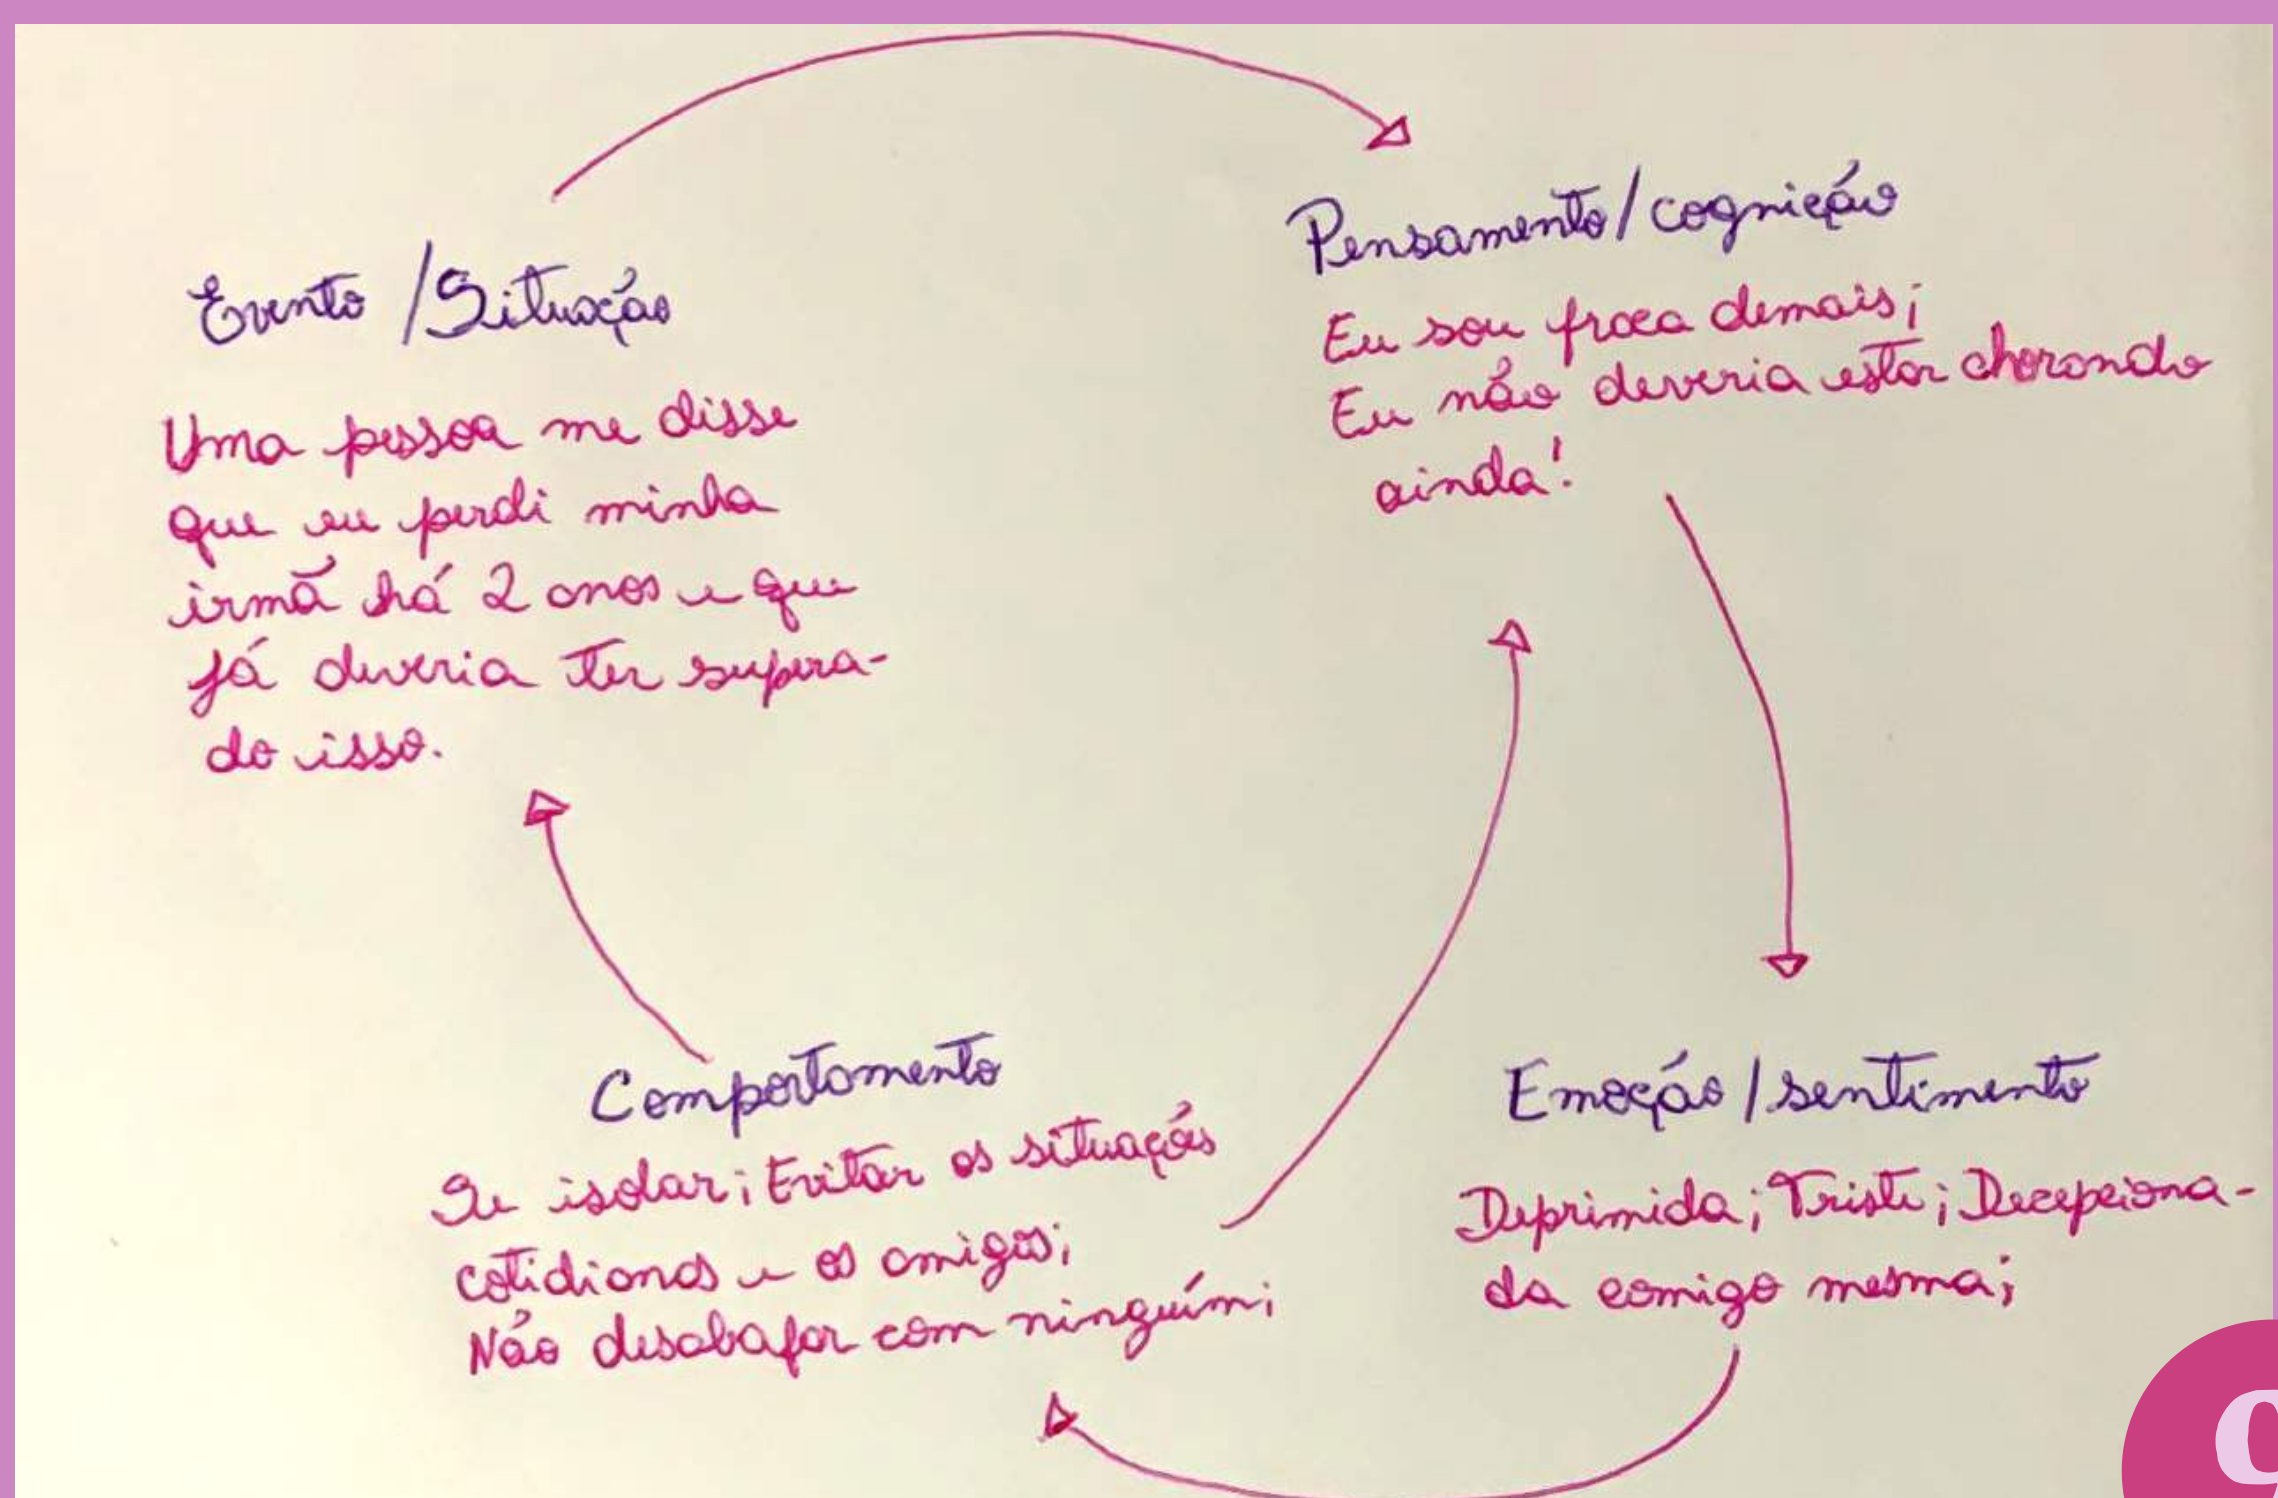 Evento / Situação
Uma pessoa me disse
que eu perdi minha
irmã há 2 anos e que
já deveria ter supera-
do isso.
Pensamento / cognição
Eu sou fraca demais;
Eu não deveria estar chorando
ainda!
Emoção / sentimento
Deprimida; Triste; Decepciona-
da comigo mesma;
Comportamento
Se isolar; Evitar as situações
cotidianas e os amigos;
Não desabafar com ninguém;